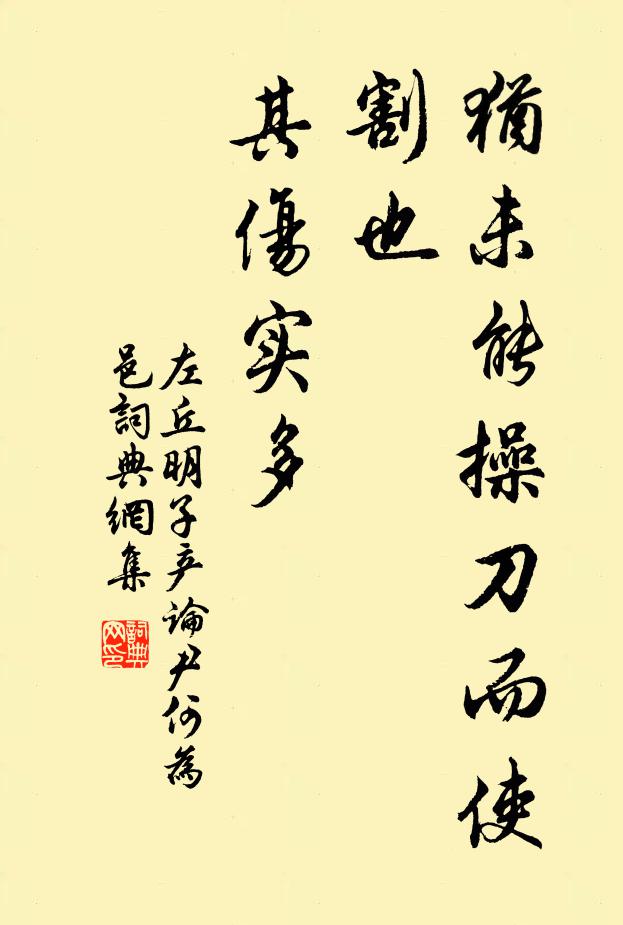 猶未能操刀而使
割也
其傷实多
左丘明子产論尹何為
邑詞典網集
詞典
网印